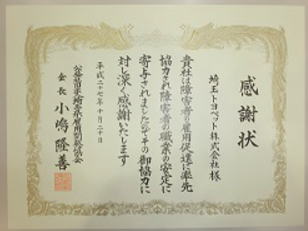 感謝状
埼玉トヨペット株式会社 様
貴社は障害者の雇用促進に率先
協力され障害者の職業の安定に
寄与されましたのでその御協力に
対し深く感謝いたします
平成二十七年十月二十日
会長 小嶋隆善